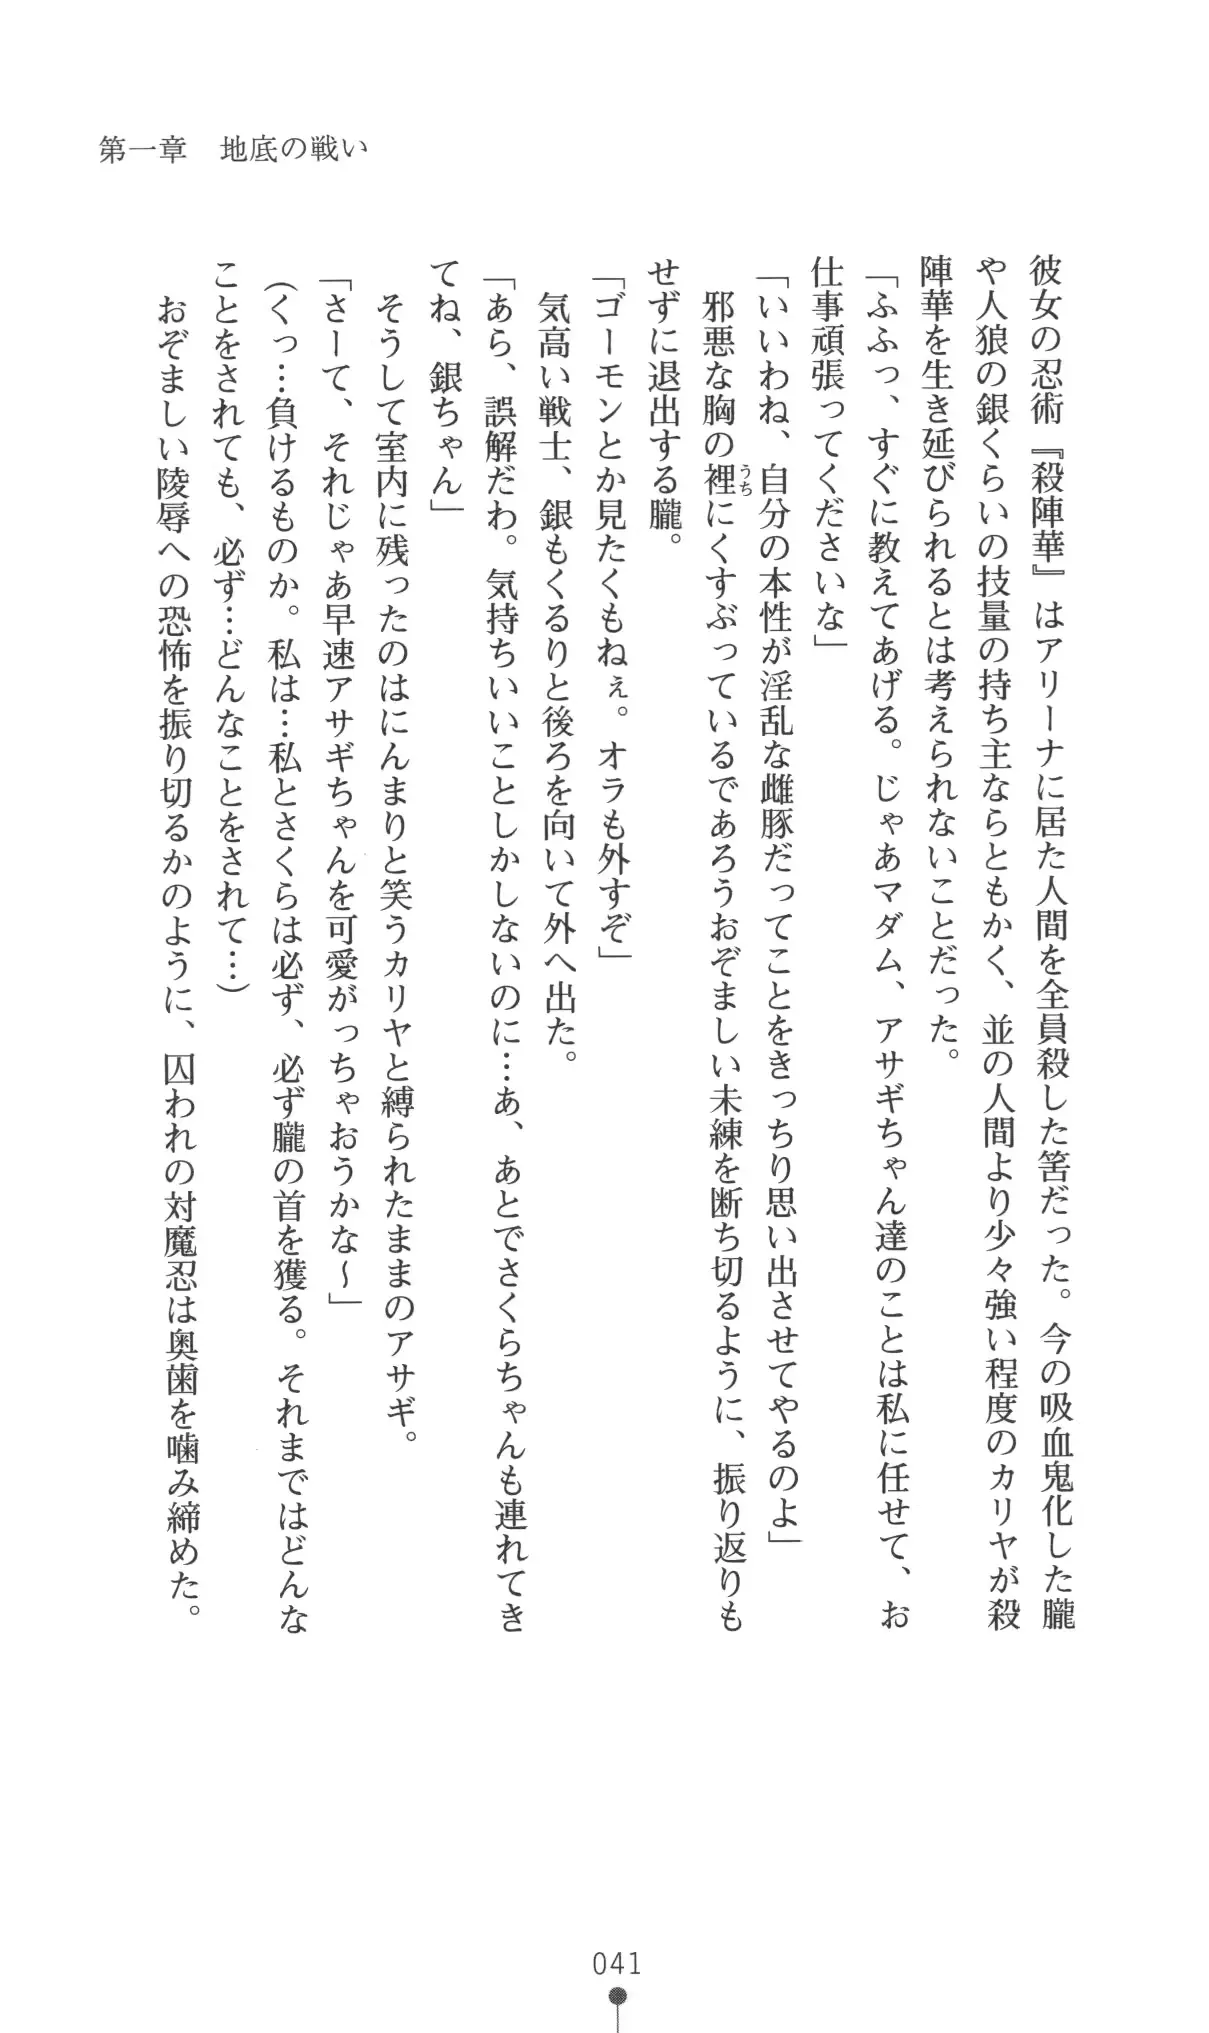 第一章　地底の戦い
彼女の忍術『殺陣華』はアリーナに居た人間を全員殺した筈だった。今の吸血鬼化した朧
や人狼の銀くらいの技量の持ち主ならともかく、並の人間より少々強い程度のカリヤが殺
陣華を生き延びられるとは考えられないことだった。
「ふふっ、すぐに教えてあげる。じゃあマダム、アサギちゃん達のことは私に任せて、お
仕事頑張ってくださいな」
「いいわね、自分の本性が淫乱な雌豚だってことをきっちり思い出させてやるのよ」
　邪悪な胸の裡うちにくすぶっているであろうおぞましい未練を断ち切るように、振り返りも
せずに退出する朧。
「ゴーモンとか見たくもねぇ。オラも外すぞ」
　気高い戦士、銀もくるりと後ろを向いて外へ出た。
「あら、誤解だわ。気持ちいいことしかしないのに…あ、あとでさくらちゃんも連れてき
てね、銀ちゃん」
　そうして室内に残ったのはにんまりと笑うカリヤと縛られたままのアサギ。
「さーて、それじゃあ早速アサギちゃんを可愛がっちゃおうかな～」
（くっ…負けるものか。私は…私とさくらは必ず、必ず朧の首を獲る。それまではどんな
ことをされても、必ず…どんなことをされて…）
　おぞましい陵辱への恐怖を振り切るかのように、囚われの対魔忍は奥歯を噛み締めた。
041